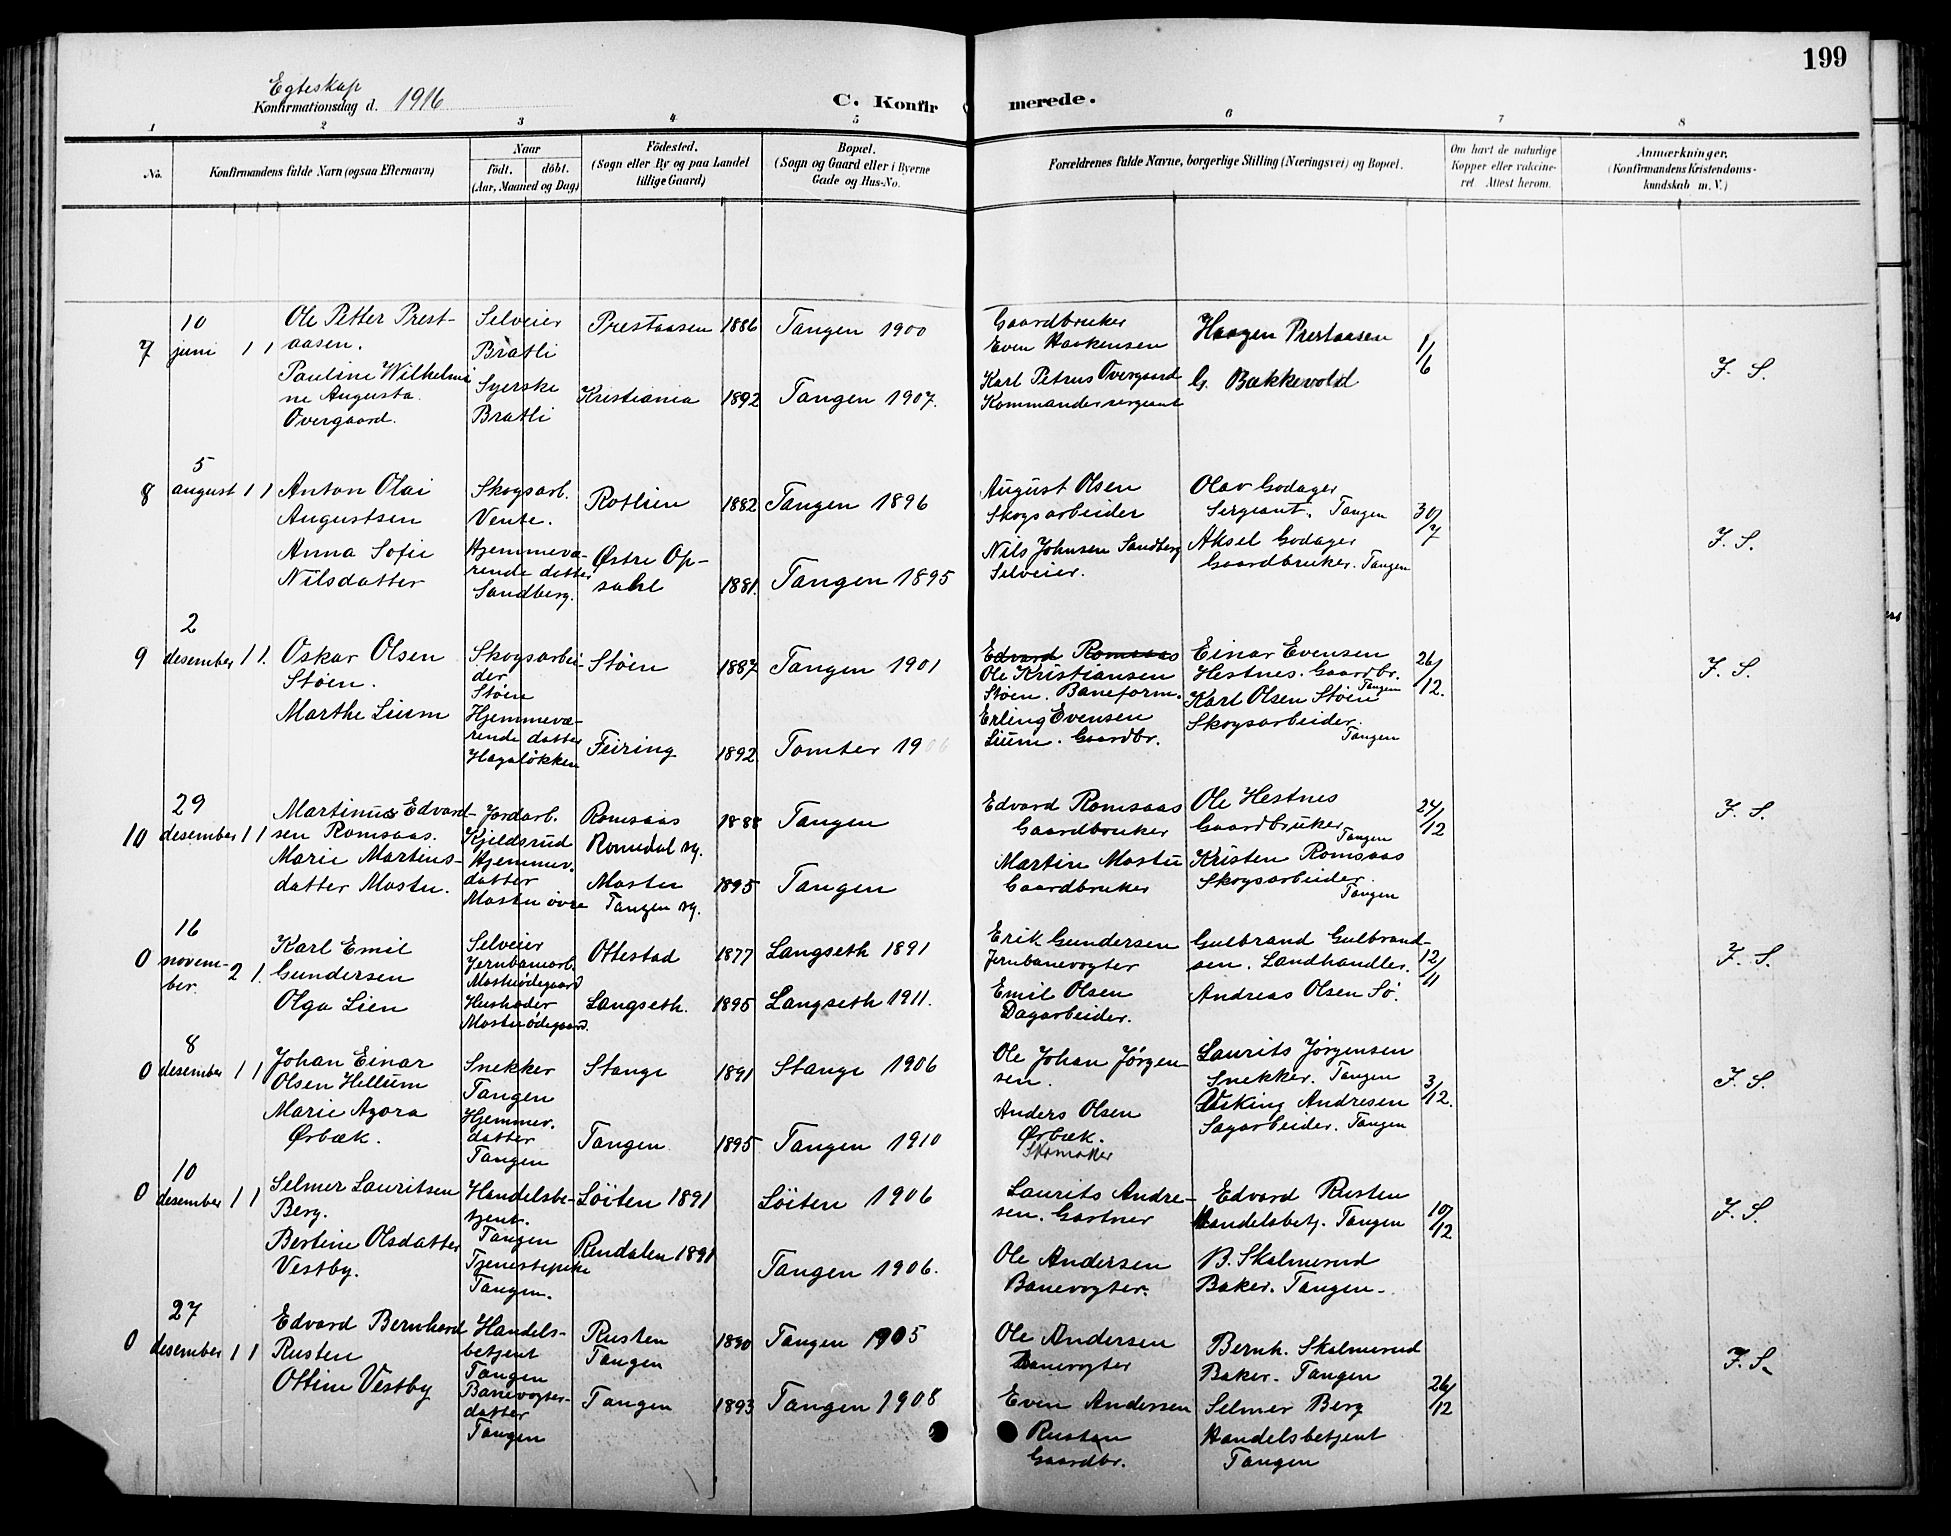 199
Egteskap
Konfirmationsdag d. 1916
C. Konfir merede.
1 2 3 4 5 6 7 8
No.
Konfirmandens fulde Navn (ogsaa Efternavn)
Naar
födt. döbt.
(Aar, Maaned og Dag)
Födested.
(Sogn eller By og paa Landet
tillige Gaard)
Bopæl.
(Sogn og Gaard eller i Byerne
Gade og Hus-No.
Forældrenes fulde Navne, borgerlige Stilling (Næringsvei) og Bopæl.
Om havt de naturlige
Kopper eller vakcine-
ret. Attest herom.
Anmærkninger,
(Konfirmandens Kristendoms-
kundskab m. V.)
7
10
juni 1 1
Ole Petter Prest-
aasen.
Selveier
Bratli
Prestaasen 1886 Tangen 1900
Gaardbruker
Even Haakensen
Haagen Prestaasen
1/6
F. S.
Pauline Wilhelmi
ne Augusta
Overgaard.
Syerske
Bratli
Kristiania 1892 Tangen 1907.
Karl Petrus Overgaard
Kommandersergeant
G. Bækkevold
8
5
august 1 1
Anton Olai
Augustsen
Skogsarb.
Vente.
Rotlien 1882 Tangen 1896
August Olsen
Skogsarbeider
Olav Godager
Sergeant. Tangen
30/7
F. S.
Anna Sofie
Nilsdatter
Hjemmevæ-
rende datter
Sandberg.
Østre Op-
sahl 1881. Tangen 1895
Nils Johnsen Sandberg
Selveier.
Aksel Godager
Gaardbruker. Tangen
9
2
desember 1 1.
Oskar Olsen
Støen.
Skogsarbei-
der
Støen
Støen 1887 Tangen 1901
Edvard Romsaas
Ole Kristiansen
Støen. Baneform.
Einar Evensen
Hestnes. Gaardbr.
Tangen
26/12.
F. S.
Marthe Lium
Hjemmevæ-
rende datter
Hagaløkken
Feiring 1892 Tomter 1906
Erling Evensen
Lium. Gaardbr.
Karl Olsen Støen
Skogsarbeider.
Tangen
10
29
desember 1 1
Martinus Edvard-
sen Romsaas.
Jordarb.
Kjeldsrud
Romsaas
Romedal sg.
1888 Tangen
Edvard Romsaas
Gaardbruker
Ole Hestnes
Gaardbruker
Tangen
24/12
F. S.
Marie Martins-
datter Mostu.
Hjemmev.
datter
Mostu øvre
Mostu
Tangen sg.
1895 Tangen
Martin Mostu
Gaardbruker
Kristen Romsaas
Skogsarbeider.
Tangen
0
16
novem-
ber. 2 1.
Karl Emil
Gundersen
Selveier
Jernbanearb.
Mostuødegaard
Ottestad 1877 Langseth 1891
Erik Gundersen
Jernbanevogter
Gulbrand Gulbrand-
sen. Landhandler.
12/11
F. S.
Olga Lien
Husholder
Mostuødegaard.
Langseth. 1895 Langseth 1911.
Emil Olsen
Dagarbeider.
Andreas Olsen Sø.
0
8
desember 1 1
Johan Einar
Olsen Hellum
Snekker
Tangen
Stange 1891 Stange 1906
Ole Johan Jørgen-
sen.
Laurits Jørgensen
Snekker. Tangen
3/12.
F. S.
Marie Agora
Ørbæk.
Hjemmev.
datter
Tangen
Tangen 1895 Tangen 1910
Anders Olsen
Ørbæk.
Skomaker
Viking Andresen
Sagarbeider. Tangen
0
10
desember 1 1
Selmer Lauritsen
Berg.
Handelsbe-
tjent.
Tangen
Løiten 1891 Løiten 1906
Laurits Andre-
sen. Gartner
Edvard Rusten
Handelsbetj. Tangen
10/12
F. S.
Bertine Olsdatter
Vestby.
Tjenestepike
Tangen.
Rendalen 1891 Tangen 1906.
Ole Andersen
Banevogter.
B. Skalmerud
Baker. Tangen.
0
27
desember 1 1
Edvard Bernhard
Rusten
Handels-
betjent
Tangen
Rusten
Tangen
1890 Tangen 1905
Ole Andersen
Banevogter
Bernh. Skalmerud
Baker. Tangen
26/12
F. S.
Ottine Vestby
Banevogter-
datter
Tangen
Tangen 1893 Tangen 1908
Even Andersen
Rusten
Gaardbr.
Selmer Berg
Handelsbetjent
Tangen